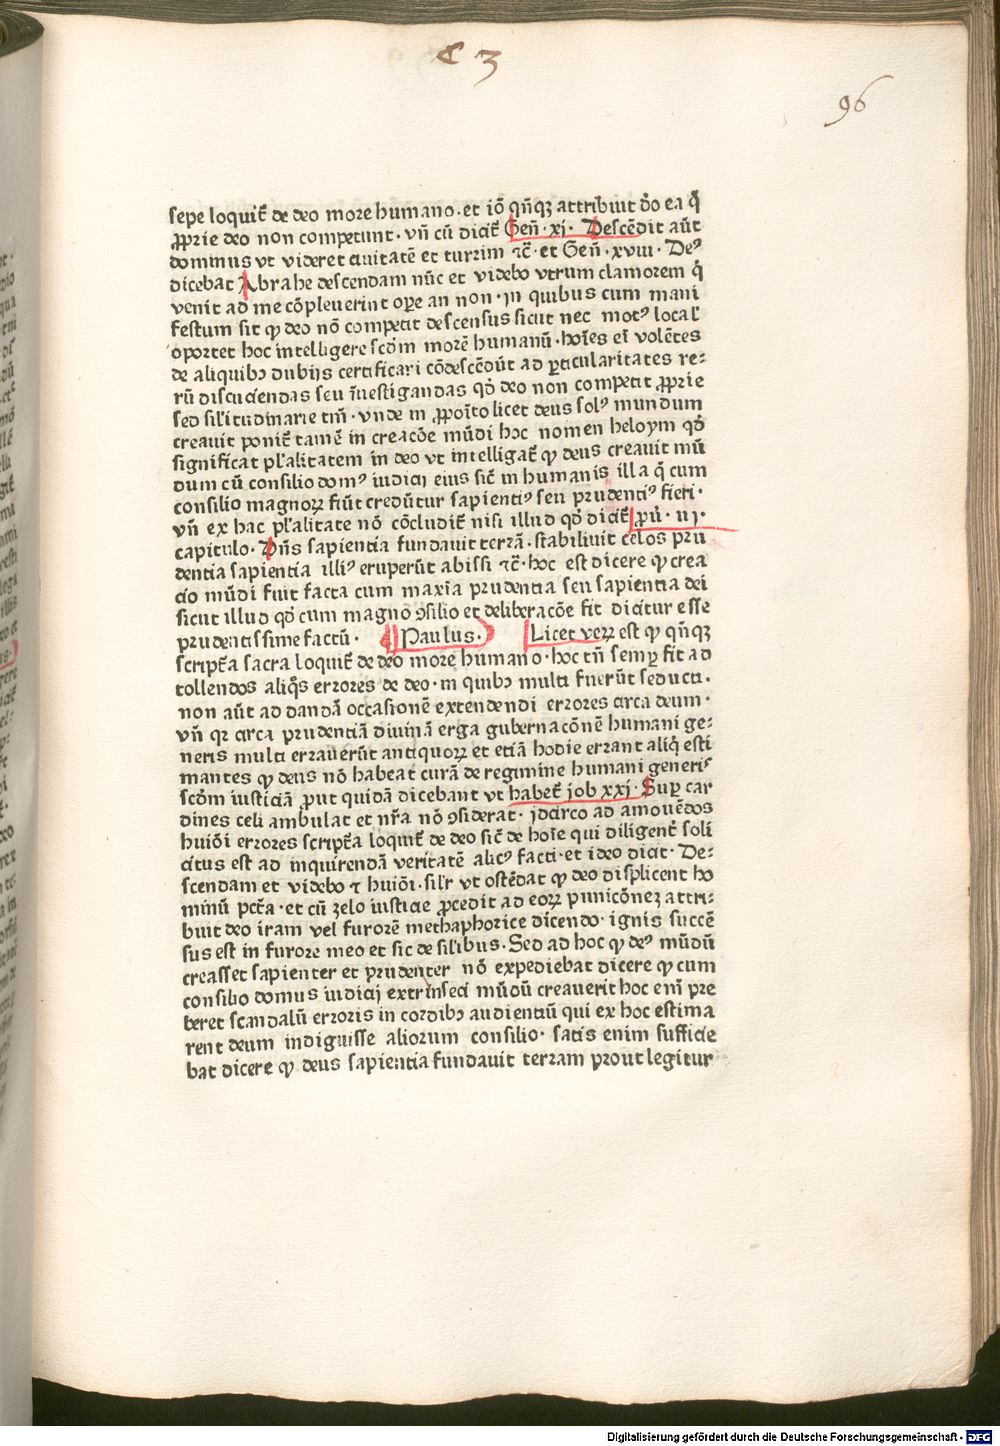 ₵ 3
96
sepe loquit̃ de deo more humano. et iõ qñqʒ attribuit dõ ea q̃
ꝓprie deo non competunt · vñ cũ dicit̃ Geñ · xj · Descẽdit aũt
dominus vt videret ciuitatẽ et turrim ⁊c̃ · et Geñ · xviii · Deꝰ
dicebat Abrahe descendam nũc et videbo vtrum clamorem q̃
venit ad me cõpleuerint oꝑe an non · jn quibus cum mani
festum sit ꝙ deo nõ competit descensus sicut nec motꝰ local'
oportet hoc intelligere scđm morẽ humanũ · hoĩes eĩ volẽtes
de aliquibꝰ dubijs certificari cõdescẽdũt ad ꝑticularitates re⸗
rũ discuciendas seu ĩuestigandas qđ deo non competit ꝓprie
sed sil'itudinarie tm̃ · vnde in ꝓpoĩto licet deus solꝰ mundum
creauit ponit̃ tamẽ in creacõe mũdi hoc nomen heloym qđ
significat pl'alitatem in deo vt intelligat̃ ꝙ deus creauit mũ
dum cũ consilio domꝰ iudicij eius sic̃ in humanis illa q̃ cum
consilio magnoꝝ fiũt credũtur sapientiꝰ seu prudentiꝰ fieri ·
vñ ex hac pl'alitate nõ cõcludit̃ nisi illud qđ dicit̃ ꝓũ · iij ·
capitulo · Dñs sapientia fundauit terrã · stabiliuit celos pru
dentia sapientia illiꝰ eruperũt abissi ⁊c̃ · hoc est dicere ꝙ crea
cio mũdi fuit facta cum maxĩa prudentia seu sapientia dei
sicut illud qđ cum magno ꝯsilio et deliberacõe fit dicitur esse
prudentissime factũ · Paulus · Licet veꝝ est ꝙ qñqʒ
script̃a sacra loquit̃ de deo more humano · hoc tñ semꝑ fit ad
tollendos aliq̃s errores de deo · in quibꝰ multi fuerũt seducti ·
non aũt ad dandã occasionẽ extendendi errores circa deum ·
vñ qꝛ circa prudentiã diuinã erga gubernacõnẽ humani ge⸗
neris multi errauerũt antiquoꝝ et etiã hodie errant aliq̃ esti
mantes ꝙ deus nõ habeat curã de regimine humani generis
scđm iusticiã ꝓut quidã dicebant vt habet̃ job xxij · Suꝑ car
dines celi ambulat et nr̃a nõ ꝯsiderat · jdcirco ad amouẽdos
huiõi errores script̃a loquit̃ de deo sic̃ de hoĩe qui diligent̃ soli
citus est ad inquirendã veritatẽ alicꝰ facti · et ideo dicit · De⸗
scendam et videbo ⁊ huiõi · sil'r vt ostẽdat ꝙ deo displicent ho
minũ pcc̃a · et cũ zelo iusticie ꝓcedit ad eoꝝ punicõneʒ attri⸗
buit deo iram vel furorẽ methaphorice dicendo · ignis succẽ
sus est in furore meo et sic de sil'ibus · Sed ad hoc ꝙ deꝰ mũdũ
creasset sapienter et prudenter nõ expediebat dicere ꝙ cum
consilio domus iudicij extrinseci mũdũ creauerit hoc enĩ pre
beret scandalũ erroris in cordibꝰ audientiũ qui ex hoc estima
rent deum indiguisse aliorum consilio · satis enim sufficie
bat dicere ꝙ deus sapientia fundauit terram prout legitur
Digitalisierung gefördert durch die Deutsche Forschungsgemeinschaft - DFG